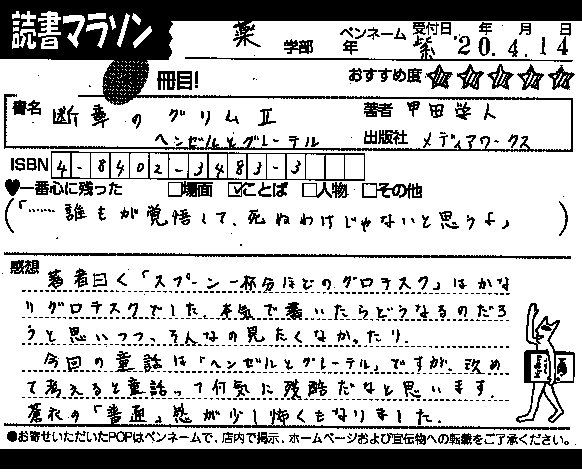 読書マラソン
薬 学部 年 ペンネーム 紫 受付日 '20年.4月.14日
冊目! おすすめ度 ☆☆☆☆☆
書名 断章のグリムⅡ 著者 甲田学人
ヘンゼルとグレーテル 出版社 メディアワークス
ISBN 4-8402-3483-3
♥一番心に残った □場面 ☑ことば □人物 □その他
(「……誰もが覚悟して、死ねるわけじゃないと思うよ」)
感想 著者曰く「スプーン一杯分ほどのグロテスク」はかな
りグロテスクでした.本気で書いたらどうなるのだろ
うと思いつつ、そんなの見たくなかったり.
今回の童話は「ヘンゼルとグレーテル」ですが、改め
て考えると童話って何気に残酷だなと思います.
蒼衣の「普通」感が少し怖くもなりました.
●お寄せいただいたPOPはペンネームで、店内で掲示、ホームページおよび宣伝物への転載をご了承ください。